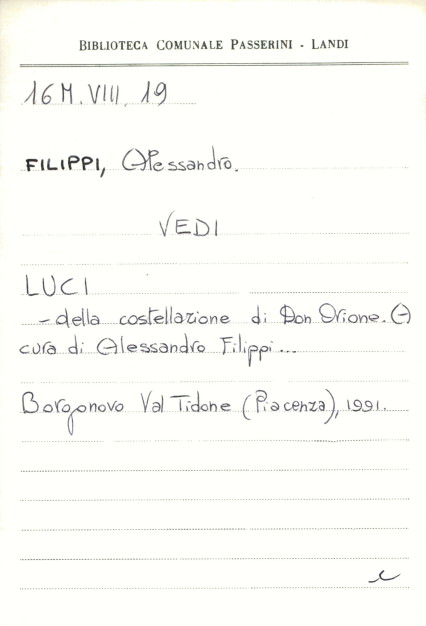 BIBLIOTECA COMUNALE PASSERINI - LANDI
16 M. VIII. 19
FILIPPI, Alessandro.
VEDI
LUCI
- della costellazione di Don Orione. A
cura di Alessandro Filippi...
Borgonovo Val Tidone (Piacenza), 1991.